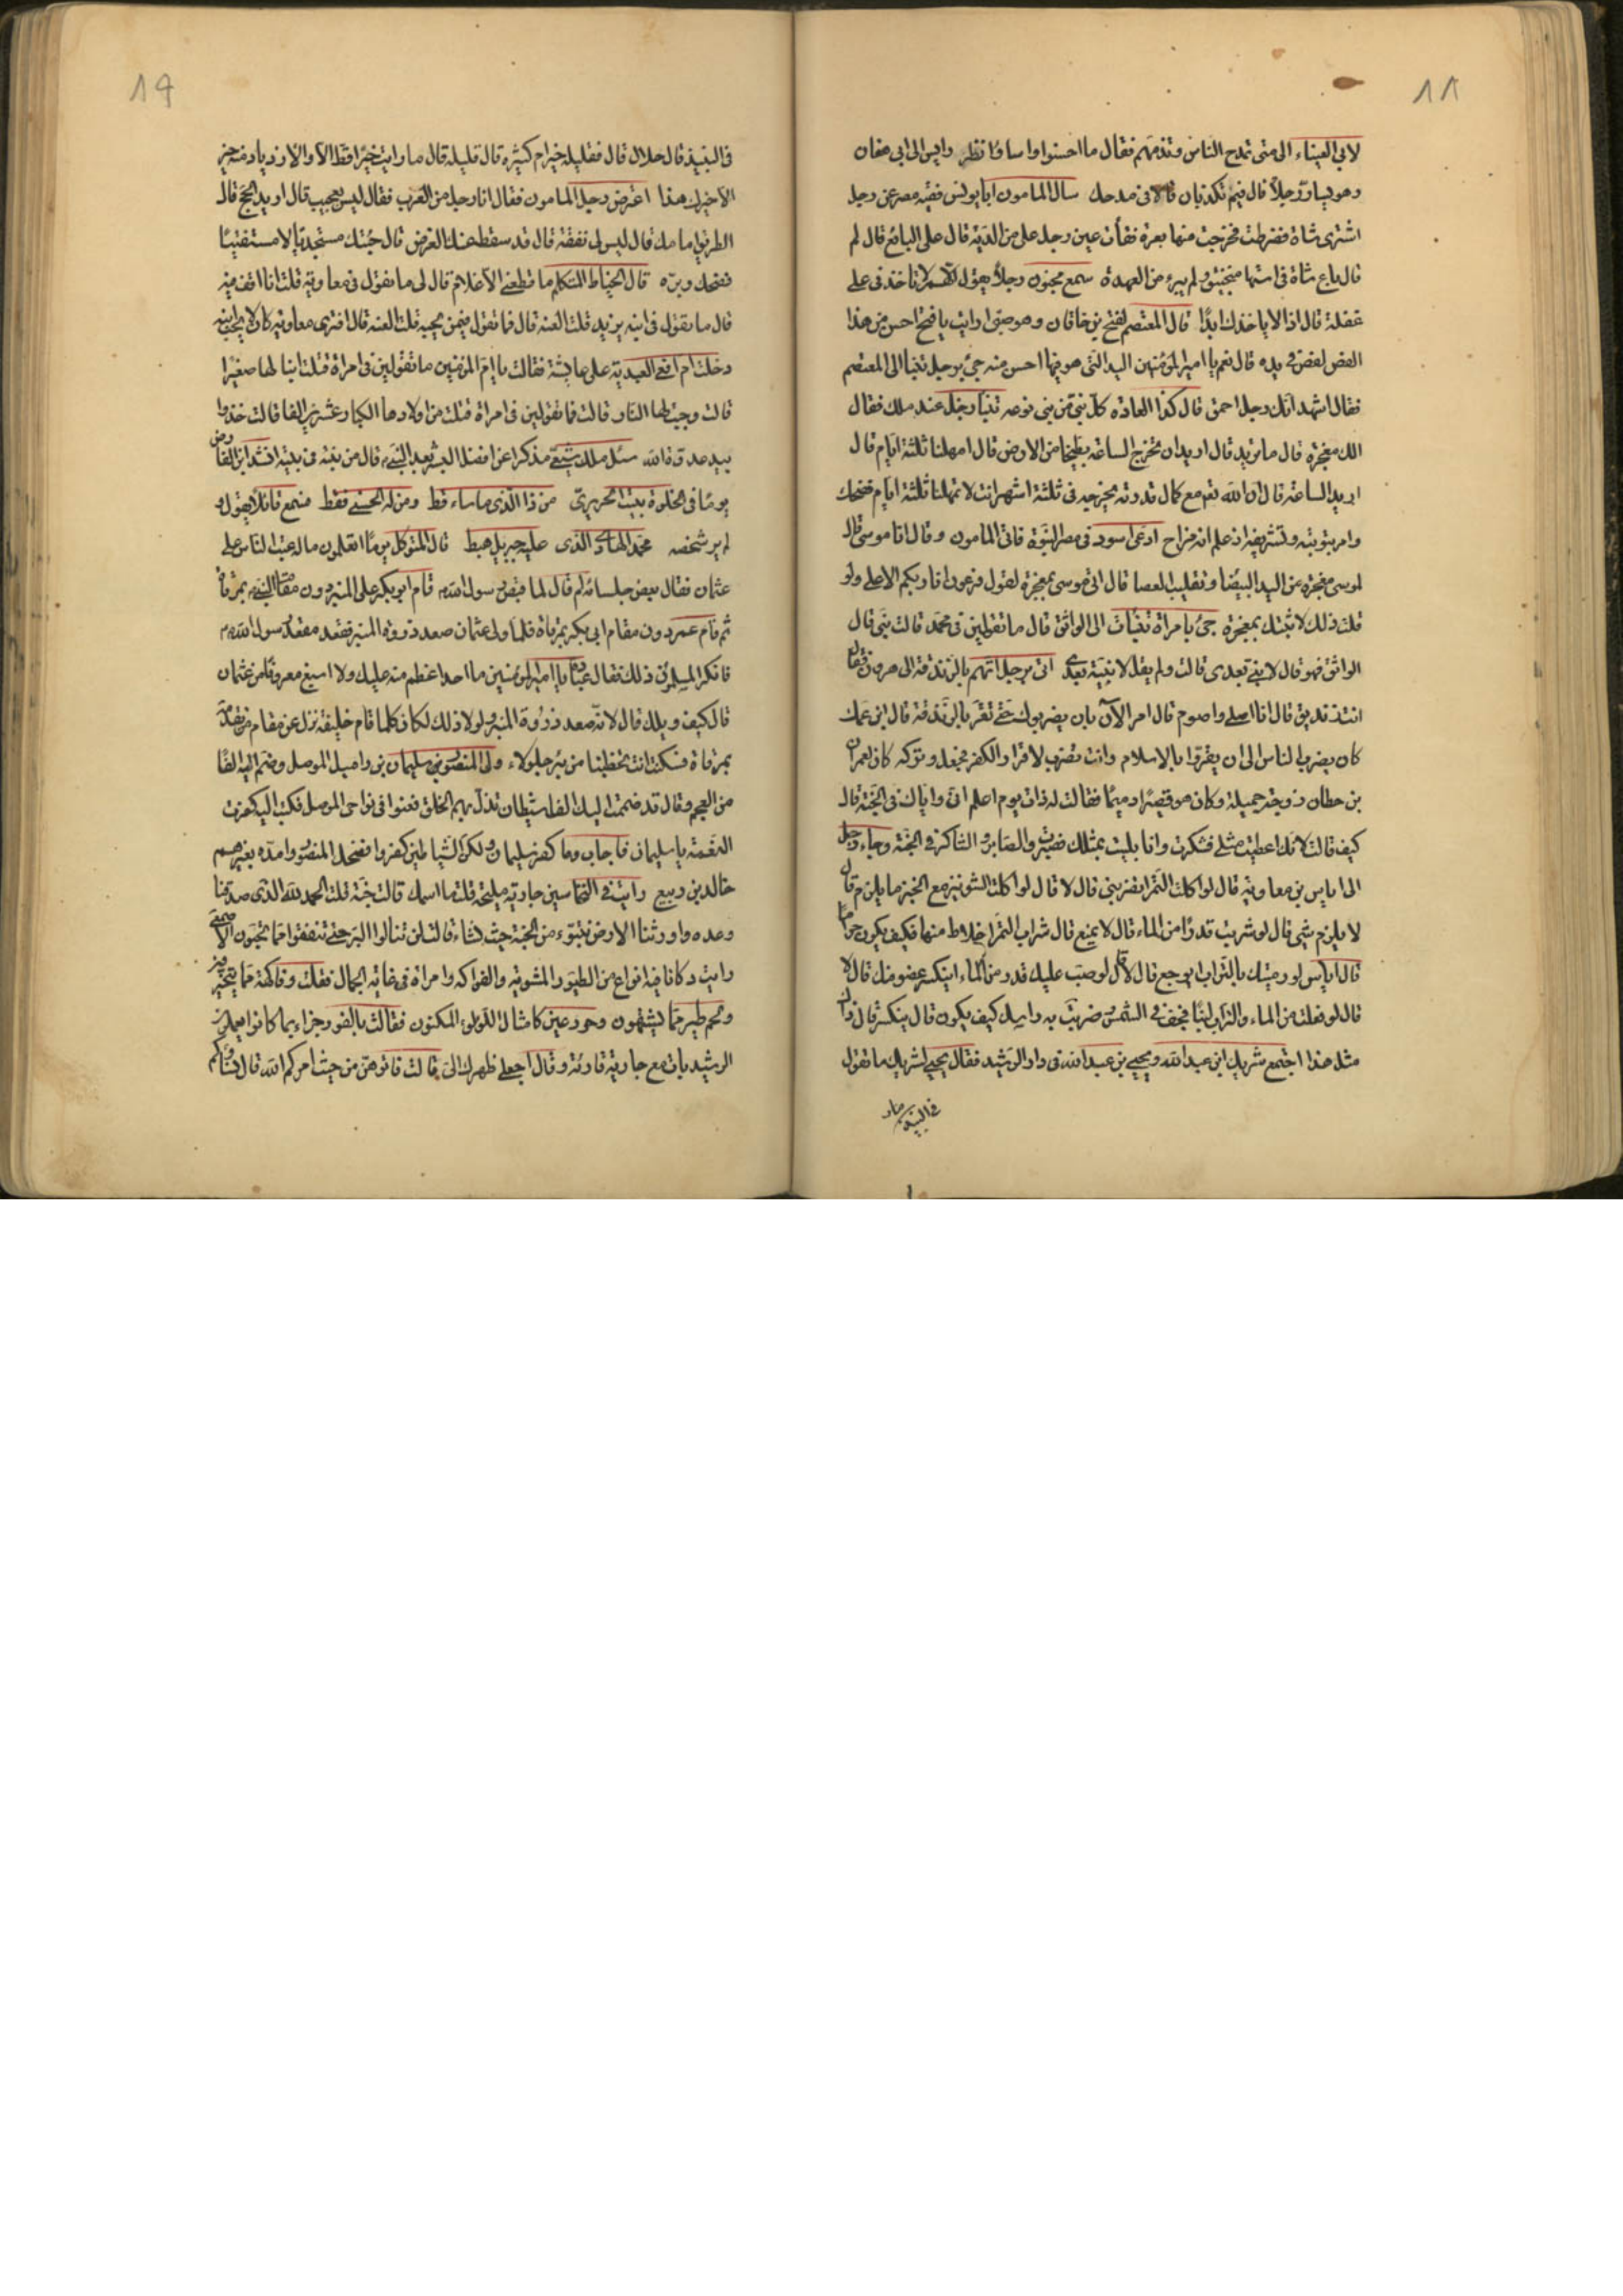 ١٨
لابي العيناء الى متى تمدح الناس وتذمهم فقال ما احسنوا واساؤا نظر رايس الى ابي هفان
وهو يسارّ رجلاً قال فيم تكذبان قالا في مدحك سال المامون ابا يونس فقيه مصر عن رجل
اشترى شاة فضرطت فخرجت منها بعرة ففقأت عين رجل على من الدية قال على البائع قال لم
قال باع شاة في استها منجنيق ولم يبرء من العهدة سمع مجنون رجلاً يقول اللهم لا تاخذني على
غفلة قال اذا لا ياخذك ابدًا قال المعتصم لفتح بن خاقان وهو صبي ارايت يا فتح احسن من هذا
الفص لفص في يده قال نعم يا امير المؤمنين اليد التي هو فيها احسن منه جئ برجل تنبا الى المعتصم
فقال اشهد انك رجل احمق قال كذا العادة كل نبي من بني نوعه تنبا رجل عند ملك فقال
الك معجزة قال ما تريد قال اريد ان تخرج الساعة بطيخا من الارض قال امهلنا ثلثة ايام قال
اريد الساعة قال ان الله تع مع كمال قدرته يخرجه في ثلثة اشهر انت لا تمهلنا ثلثة ايام فضحك
وامر بتوبته وتشريفه اذ علم انه مزاح ادعى اسود في مصر النبوة فاتى المامون وقال انا موسى قال
لموسى معجزة من اليد البيضا وتقليب العصا قال اتى موسى بمعجزة لقول فرعون انا ربكم الاعلى ولو
قلت ذلك لاتيتك بمعجزة جئ بامراة تنبات الى الواثق قال ما تقولين في محمد قالت نبي قال
الواثق فهو قال لا نبي بعدى قالت ولم يقل لا نبية بعدى اتى برجل اتهم بالزندقة الى هرون فقال
انت زنديق قال انا اصلي واصوم قال امر الآن بان يضربوك حتى تقر بالزندقة قال ابن عمك
كان يضرب الناس الى ان يقروا بالاسلام وانت تضرب لاقرار الكفر فخجل وتركه كان لعمران
بن حطان زوجة جميلة وكان هو قصيرًا دميمًا فقالت له ذات يوم اعلم اني واياك في الجنة قال
كيف قالت لانك اعطيت مثلي فشكرت وانا بليت بمثلك فصبرت والصابر والشاكر في الجنة وجاء رجل
الى اياس بن معاوية قال لو اكلت التمر اتضربني قال لا قال لو اكلت الشونيز مع الخبز ما يلزم قال
لا يلزم شي قال لو شربت قدرًا من الماء قال لا يمنع قال شراب التمر اخلاط منها فكيف يكون حرامًا
قال اياس لو رميتك بالتراب ايوجع قال لا قال لو صب عليك قدر من الماء اينكسر عضو منك قال لا
قال لو فعلت من الماء والتراب لبنًا فجفف في الشمس وضربت به راسك كيف يكون قال ينكسر قال ذاك
مثل هذا اجتمع شريك ابن عبد الله ويحيى بن عبد الله في دار الرشيد فقال يحيى لشريك ما تقول
في النبيذ
١٩
في النبيذ قال حلال قال فقليله خير ام كثيره قال قليله قال ما رايت خيرًا قط الا والازدياد منه خير
الا خيرك هذا اعترض رجل المامون فقال انا رجل من العرب فقال ليس بعجيب قال اريد الحج قال
الطريق امامك قال ليس لي نفقة قال قد سقط عنك الفرض قال جئتك مستجديا لا مستفتيًا
فضحك وبره قال الخياط المتكلم ما قطعني الا غلام قال لي ما تقول في معاوية قلت انا اقف فيه
قال ما تقول في ابنه يزيد قلت العنه قال فما تقول فيمن يحبه قلت العنه قال افترى معاوية كان لا يحب ابنه
دخلت ام افعى العبدية على عايشة فقالت يا ام المؤمنين ما تقولين في امراة قتلت ابنا لها صغيرًا
قالت وجبت لها النار قالت فما تقولين في امراة قتلت من اولادها الكبار عشرين الفا قالت خذوا
بيد عدوة الله سئل ملك شيعي مذكرا عن افضل البشر بعد النبي قال من بنته في بيته
يومًا في الخلوة ببيت الحريري من ذا الذي ما ساء قط ومن له الحسنى فقط فسمع قائلا يقول و
لم ير شخصه محمد الهادى الذى عليه جبريل هبط قال المتوكل يومًا اتعلمون ماله عتب الناس على
عثمان فقال بعض جلسائه لم قال لما قبض رسول الله قام ابو بكر على المنبر دون مقام النبي بمرقاة
ثم قام عمر دون مقام ابي بكر بمرقاة فلما ولى عثمان صعد ذروة المنبر فقعد مقعد رسول الله
فانكر المسلمون ذلك فقال عبادة يا امير المؤمنين ما احد اعظم منه عليك ولا اسبغ معروفًا من عثمان
قال كيف ويلك قال لانه صعد ذروة المنبر ولولا ذلك لكان كلما قام خليفة نزل عن مقام من تقدمه
بمرقاة فكنت انت تخطبنا من بئر جلولاء ولى المنصور سليمان بن راميل الموصل وضم اليه الفًا
من العجم وقال قد ضممت اليك الف شيطان تذل بهم الخلق فعثوا في نواحى الموصل فكتب اليه كفرت
النعمة يا سليمان فاجاب وما كفر سليمان ولكن الشياطين كفروا فضحك المنصور وامده بغيرهم
خالد بن ربيع رايت في النخاسين جارية مليحة قلت ما اسمك قالت جنة قلت الحمد لله الذى صدقنا
وعده واورثنا الارض نتبوء من الجنة حيث نشاء قالت لن تنالوا البر حتى تنفقوا مما تحبون الاصمعي
رايت دكانا فيه انواع من الطيور المشوية والفواكه وامراة في غاية الجمال فقلت وفاكهة مما يتخيرون
ولحم طير مما يشتهون وحور عين كامثال اللؤلؤ المكنون فقالت بالفور جزاء بما كانوا يعملون
الرشيد بات مع جارية قارئة وقال اجعلى ظهرك الى قالت فاتوهن من حيث امركم الله قال نساؤكم